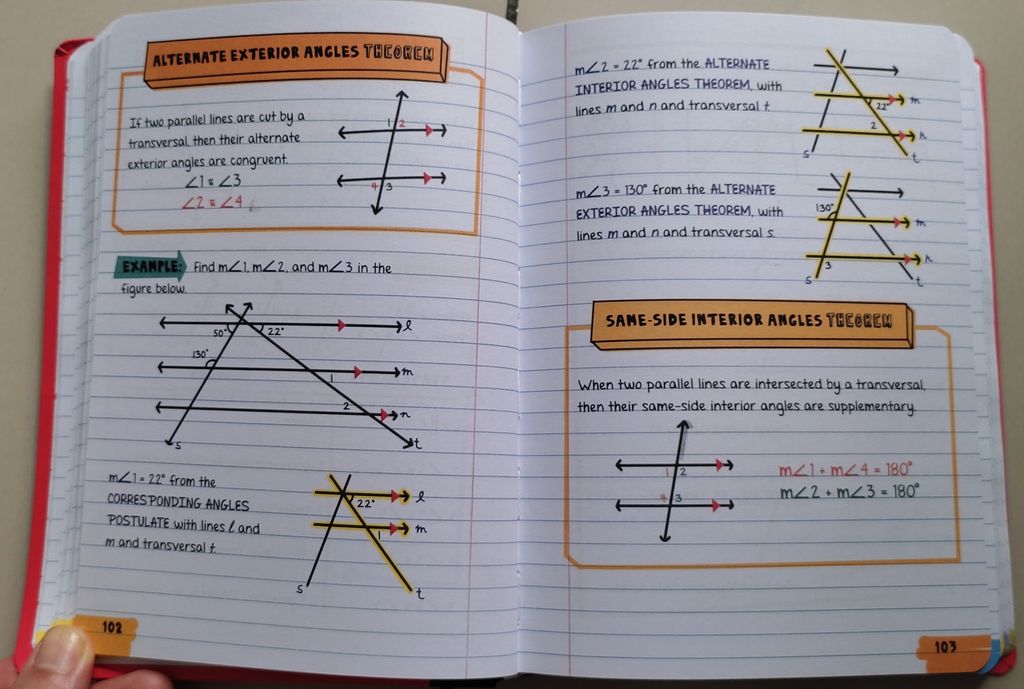 ALTERNATE EXTERIOR ANGLES THEOREM
If two parallel lines are cut by a
transversal, then their alternate
exterior angles are congruent.
∠1 ≅ ∠3
∠2 ≅ ∠4
1 2
4 3
EXAMPLE: Find m∠1, m∠2, and m∠3 in the
figure below.
50° 22° l
130° m
1
2 n
s t
m∠1 = 22° from the
CORRESPONDING ANGLES
POSTULATE with lines l and
m and transversal t.
l
22°
m
1
s t
102
m∠2 = 22° from the ALTERNATE
INTERIOR ANGLES THEOREM, with
lines m and n and transversal t.
m
22°
2
n
s t
m∠3 = 130° from the ALTERNATE
EXTERIOR ANGLES THEOREM, with
lines m and n and transversal s.
130°
m
3 n
s t
SAME-SIDE INTERIOR ANGLES THEOREM
When two parallel lines are intersected by a transversal,
then their same-side interior angles are supplementary.
1 2
4 3
m∠1 + m∠4 = 180°
m∠2 + m∠3 = 180°
103